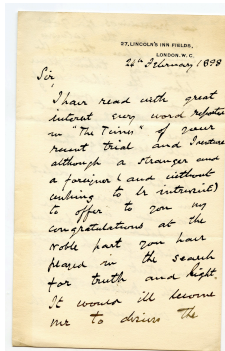 27, LINCOLN'S INN FIELDS,
LONDON. W.C.
24th February 1898
Sir,
I have read with great
interest every word reported
in "The Times" of your
recent trial and I venture
although a stranger and
a foreigner (and without
wishing to be intrusive)
to offer to you my
congratulations at the
noble part you have
played in the search
for truth and Right.
It would ill become
me to discuss the